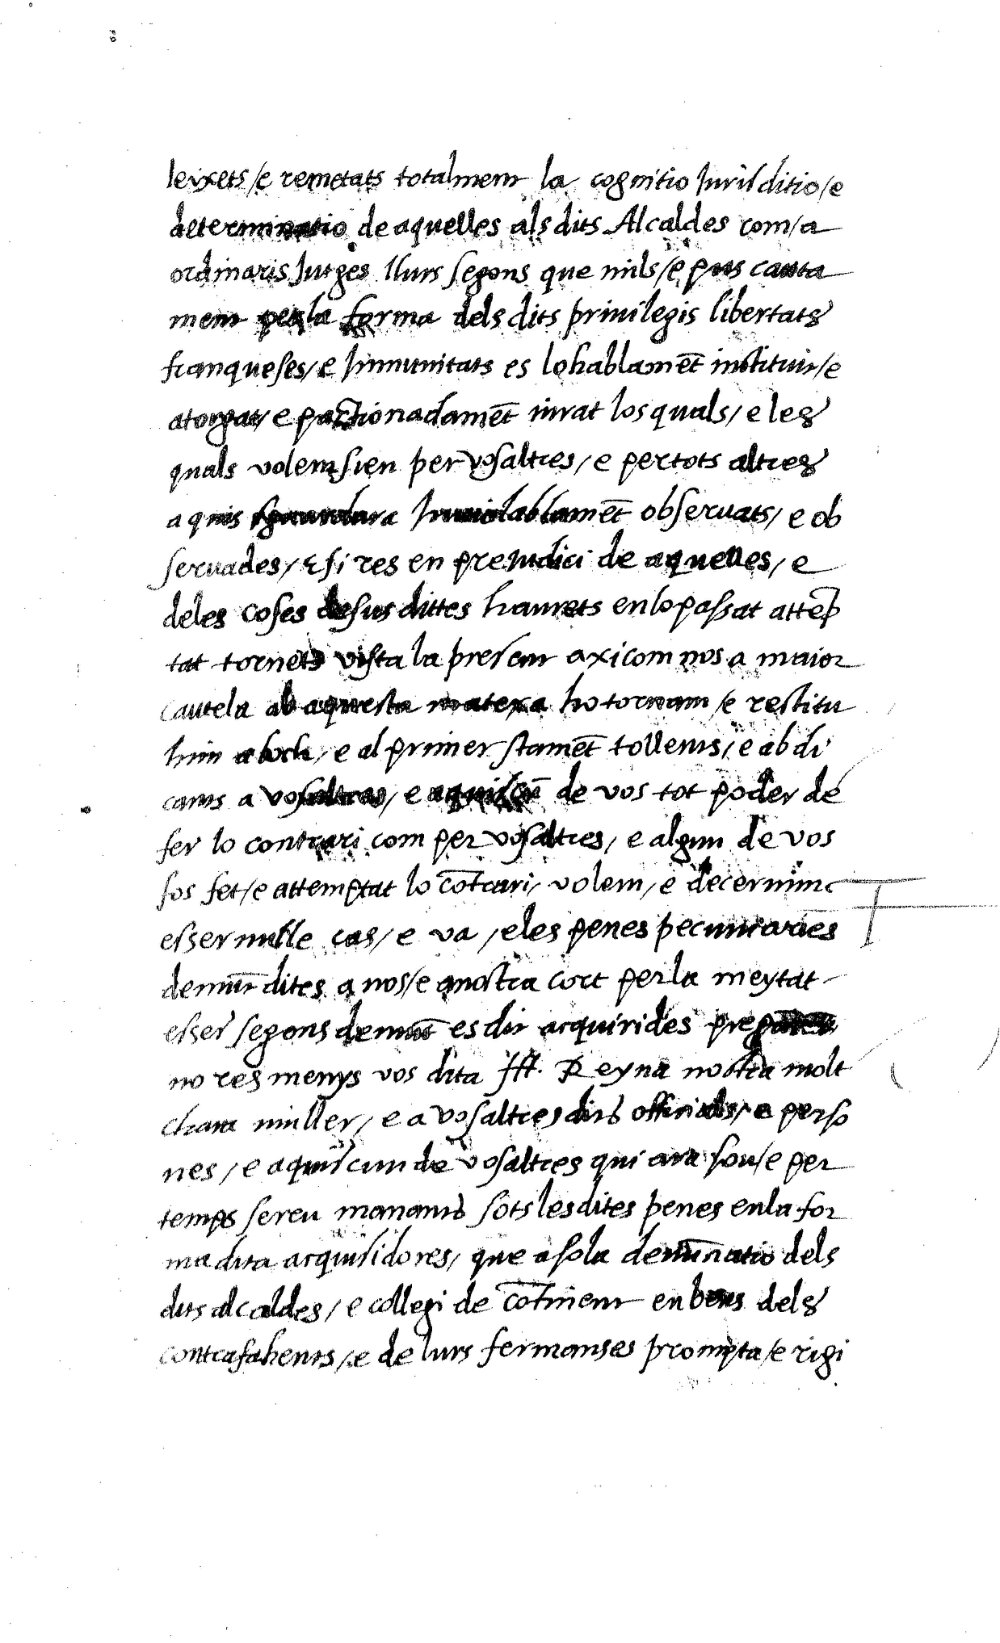 leixets /e remetats totalment la cognitio Jurisditio /e
determinatio de aquelles als dits Alcaldes com /a
ordinaris Jutges llurs segons que mils /e pus cauta
ment per la forma dels dits priuilegis libertats
franqueses /e Jnmunitats es lohablamēt instituit /e
atorgat /e pactionadamēt iurat los quals / e les
quals volem sien per vosaltres / e per tots altres
a quis Jnuiolablamēt obseruats / e ob
seruades / E si res en preiudici de aquelles / e
deles coses desus dittes haurets en lo passat attēp
tat tornets vista la present axi com nos a maior
cautela ab aquesta matexa ho tornam /e restitu
him a loch / e al primer stamēt tollents / e abdi
cants a vosaltres / e a quiscū de vos tot poder de
fer lo contrari com per vosaltres / e algun de vos
fos fet /e attemptat lo cōtrari / volem / e decernim
esser nulle cas / e va / e les penes pecuniaries
demūt dites a nos /e a nostra cort per la meytat
esser segons demūt es dit acquirides
no res menys vos dita Jll. Reyna nostra molt
chara muller / e a vosaltres dits officials /e perso
nes / e a quiscun de vosaltres qui ara sou /e per
temps sereu manants sots les dites penes en la for
ma dita acquisidores / que a sola denūnatio dels
dits alcaldes / e collegi de cōtinent en bens dels
contrafahents /e de lurs fermanses prompta /e rigi